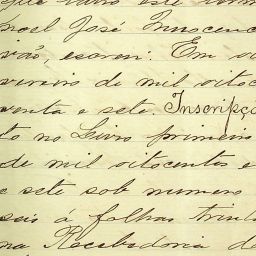 que lavro este
noel José Innocenc
vão, escrevi. Em vi
vereiro de mil oitoc
venta e sete. Inscripç
to no Livro primeiro
de mil oitocentos e
e sete sob numero
seis á folhas trint
na Recebedoria de